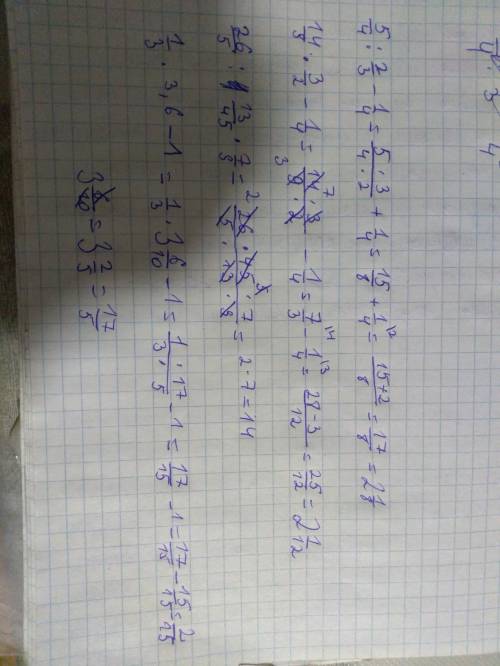 5/4 : 2/3 - 1/4 = 5·3/4·2 + 1/4 = 15/8 + 1/4 \2 = 15+2/8 = 17/8 = 2 1/8
14/9 · 3/2 - 1/4 = 14·3/9·2 - 1/4 = 7/3 \4 - 1/4 \3 = 28-3/12 = 25/12 = 2 1/12
26/5 : 13/45 · 7/9 = 26·45·7/5·13·9 = 2·7 = 14
1/3 · 3,6 - 1 = 1/3 · 3 6/10 - 1 = 1·17/3·5 - 1 = 17/15 - 1 = 17/15 - 15/15 = 2/15
3 6/10 = 3 2/5 = 17/5